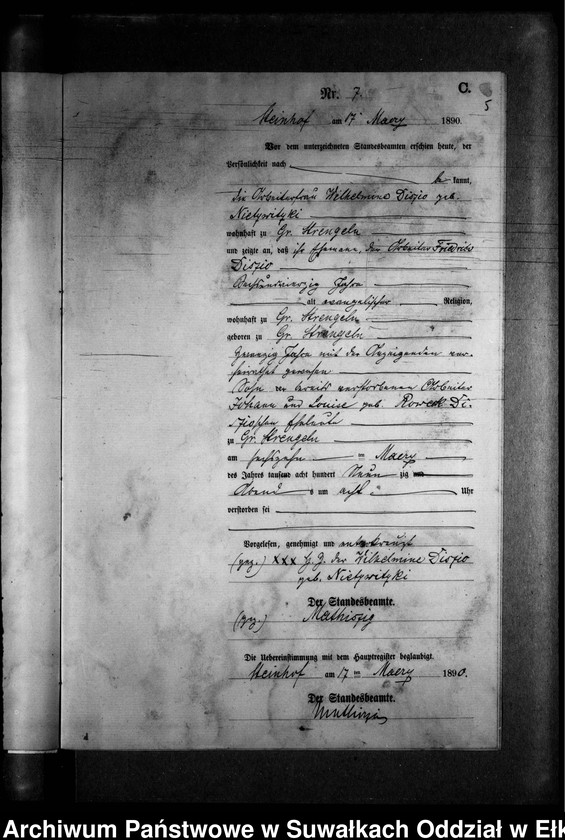 C.
Nr. 7.
5
Steinhof am 17ten Maerz 1890.
Vor dem unterzeichneten Standesbeamten erschien heute, der
Persönlichkeit nach
be kannt,
die Arbeiterfrau Wilhelmine Diszio geb.
Nietzwitzki
wohnhaft zu Gr. Strengeln
und zeigte an, daß ihr Ehemann, der Arbeiter Friedrich
Diszio
Sechsundvierzig Jahre
alt evangelischer Religion,
wohnhaft zu Gr. Strengeln
geboren zu Gr. Strengeln
zwanzig Jahre mit der Anzeigenden ver-
heirathet gewesen
Sohn der bereits verstorbenen Arbeiter
Johann und Louise geb. Roweck Di-
szioschen Eheleute
zu Gr. Strengeln
am sechszehnten Maerz
des Jahres tausend acht hundert Neun zig
Abends um acht Uhr
verstorben sei
Vorgelesen, genehmigt und unterkreuzt
(gez.) XXX H. Z. der Wilhelmine Diszio
geb. Nietzwitzki
Der Standesbeamte.
(gez.) Mathiszig
Die Uebereinstimmung mit dem Hauptregister beglaubigt.
Steinhof am 17ten Maerz 1890.
Der Standesbeamte.
Mathiszig
Archiwum Państwowe w Suwałkach Oddział w Ełk